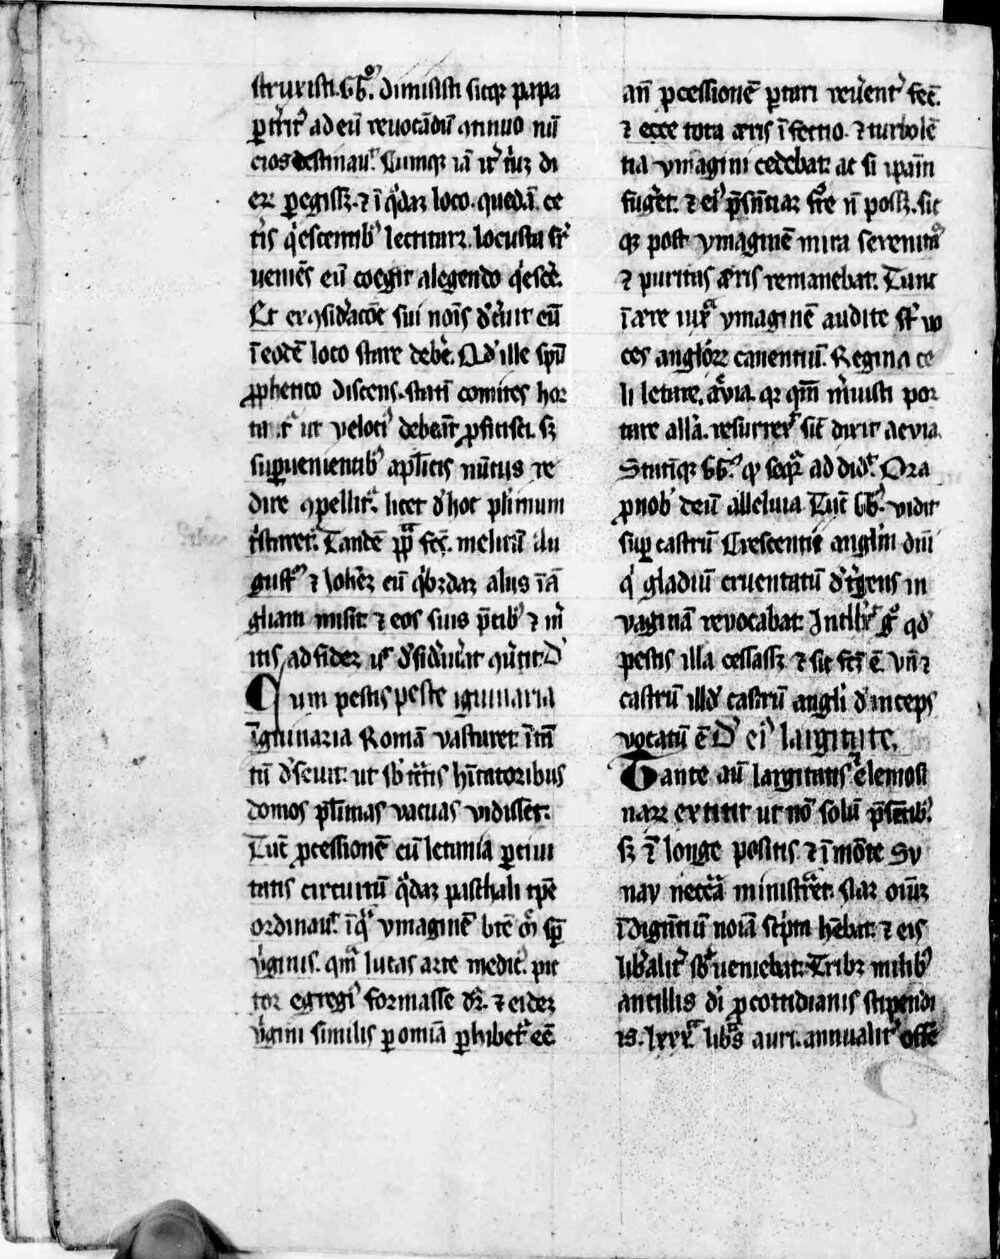 struxisti. GG9. dimisisti sicq; papa
ꝑt̾rit9 ad eū revocādū ꝯtinuo nū
cios destinau᷑. Cumq; iā it̾ t̾uꝫ di
eꝝ ꝑegissꝫ. ⁊ ī q̇daꝫ loco. quedā. ce
t̾is q̇escentib9 lectitaꝝ. locusta sr̄
ueniēs eū coegit a legendo q̇esce̾.
Et ex ꝯsid̾acōe sui noīs d̾c̾uit eū
ī eodē loco stare debe̾. Qd̾ ille spū
ꝓphetico discens. statī comites hor
tat᷑ ut veloci9 debeāt ꝓficisci. sꝫ
suꝑuenientib9 aplīcis nūtiis re
dire ꝯpellit᷑. licet d̾ hoc plimum
t̾staret᷑. Tandē pp̄ fc̄s. melitū Au
gust̾ ⁊ ioh̄eꝫ cū q̇busdaꝫ aliis ī ā
gliam misit ⁊ eos suis p̄cib9 ⁊ m̾
itis ad fideꝫ ut d̾sid̾auat ꝯu̾tit. D̾
Cum pestis peste iguinaria
īguinaria Romā vastaret ī tn̄
tū d̾seuit: ut sb̾ t̾ris h̄itatoribus
domos pl̄imas vacuas vidisset.
Tūc ꝓcessionē cū letania ꝑ ciui
tatis circuitū q̇daꝫ paschali tp̄e
ordinau᷑. ī q̇ ymaginē btē m̄ sp̄
v̾ginis. qm̄ lucas arte medic9. pic
tor egregi9 formasse dr̄. ⁊ eideꝫ
v̾gini similis ꝑ omīa ꝑhibet᷑ eē.
an̄ ꝓcessionē portari reu̾ent᷑ fec̄.
⁊ ecce tota aeris īfectio. ⁊ turbolē
tia ymagini cedebat: ac si ipāīn
fug̾et. ⁊ ei9 p̄sn̄tiaꝫ ferre nō possꝫ. sic
q; post ymaginē mira serenitas
⁊ puritas aeris remanebat. Tunc
ī aere iuxͣ ymaginē audite st̄ vo
ces angloꝝ canentiū. Regina ce
li letare, aͣvia. qꝛ qm̄ m̾uisti por
tare allā. resurrex̾ sic̄ dixit aevia.
Statīq; GG9. qͦ seqͣ addid̾. Ora
ꝓ nob̾ deū alleluia Tūc GG9. vidit
suꝑ castrū Crescentie anglm̄ dnī
q̇ gladiū cruentatū d̾tergens in
vaginā revocabat. Intllx̾ g̊ qd̾
pestis illa cessassꝫ ⁊ sic fc̄m ē vn̄ ⁊
castrū illd̾ castrū angli d̾inceps
vocatū ē D̾ ei9 largitate.
Tante au̾ largitatis ⁊ elemosi
naꝝ extitit ut nō solū p̄sētib9.
sꝫ ⁊ longe positis ⁊ ī mōte Sy
nay necc̄ā ministraret. Nā oīūꝫ
īdigentiū noīa sc̾ptā hēbat: ⁊ eis
lib̾alit̾ sb̾ueniebat: Tribꝫ milib9
ancillis dī ꝓ cottidianis stipendi
is. lxxxͣ. libͣs auri. annualit̾ offe